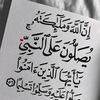 إن الله وملائكته
يصلون على النبي
يا أيها الذين آمنوا
صلوا عليه وسلموا تسليما